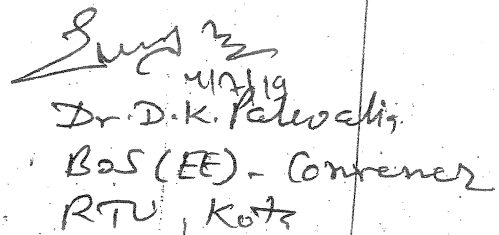 4/7/19
Dr. D.K. Palwalia,
BOS (EE) - Convener
RTU, Kota